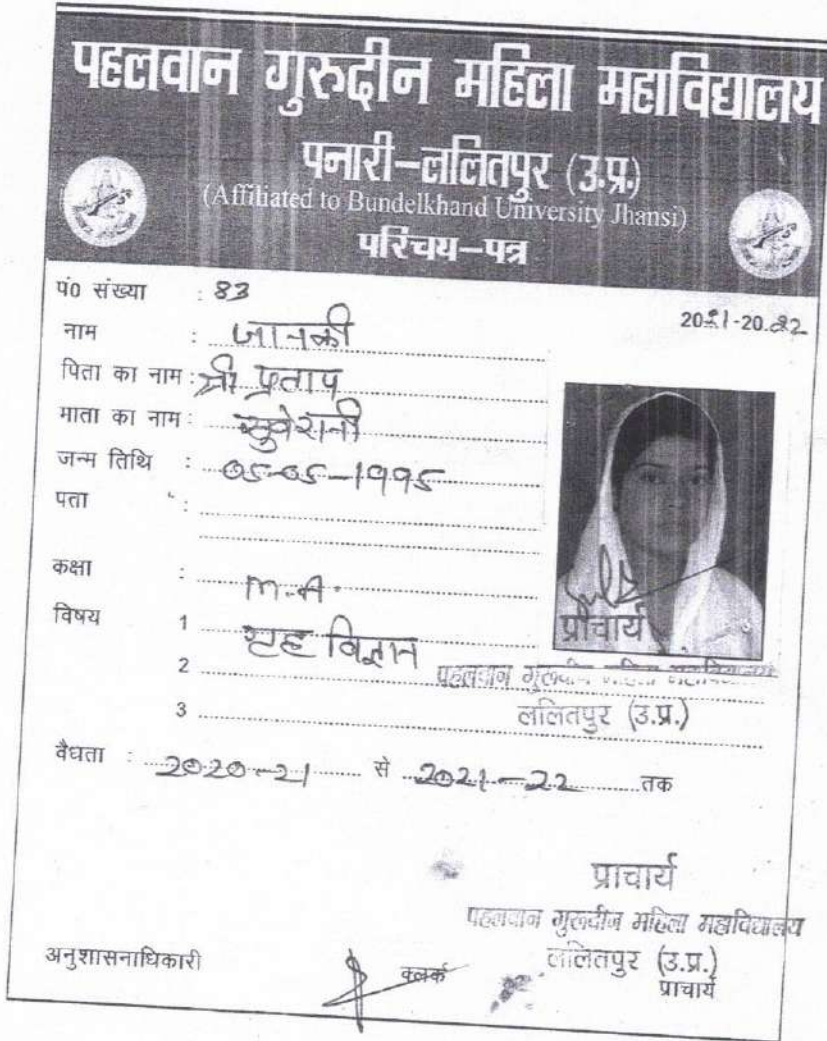 पहलवान गुरुदीन महिला महाविद्यालय
पनारी–ललितपुर (उ.प्र.)
(Affiliated to Bundelkhand University Jhansi)
परिचय–पत्र
पं0 संख्या : 83
2021-20.22
नाम : जानकी
पिता का नाम : श्री प्रताप
माता का नाम :
जन्म तिथि : 05-05-1995
पता :
कक्षा : M.A.
विषय 1 गृह विज्ञान
2
3
प्राचार्य
पहलवान गुरुदीन महिला महाविद्यालय
ललितपुर (उ.प्र.)
वैधता : 2020-21 से 2021-22 तक
प्राचार्य
पहलवान गुरुदीन महिला महाविद्यालय
ललितपुर (उ.प्र.)
अनुशासनाधिकारी क्लर्क प्राचार्य